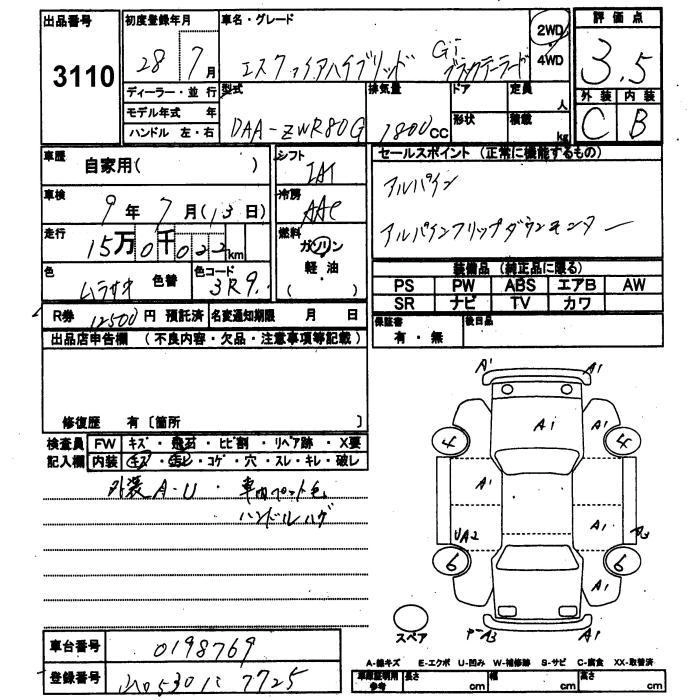 出品番号 3110
初度登録年月 28 7月
車名・グレード
エスクァイアハイブリッド Gi ブラックテーラード
2WD・4WD
評価点 3.5
外装 C 内装 B
ディーラー・並行
モデル年式 年
ハンドル 左・右
型式 DAA-ZWR80G
排気量 1800cc
ドア 形状
定員 人
積載 kg
車歴 自家用( )
シフト IAT
車検 9年7月(13日)
冷房 AAC
走行 15万0千022km
燃料 ガソリン 軽油 ( )
色 ムラサキ 色替
色コード 3R9
R券 12500円 預託済 名変通知期限 月 日
セールスポイント (正常に機能するもの)
アルパイン
アルパインフリップダウンモニター
装備品 (純正品に限る)
PS PW ABS エアB AW
SR ナビ TV カワ
保証書 有・無 後日品
出品店申告欄 (不良内容・欠品・注意事項等記載)
修復歴 有 〔箇所 〕
検査員 FW キズ・飛石・ヒビ割・リペア跡・X要
記入欄 内装 キズ・汚レ・コゲ・穴・スレ・キレ・破レ
外装A-U・車内ペット毛
ハンドルハゲ
A1 A1
A1
4 4
A1
UA2 A1
6 6
A1
A3 A1
スペア
A-線キズ E-エクボ U-凹み W-補修跡 S-サビ C-腐食 XX-取替済
車庫証明用参考 長さ cm 幅 cm 高さ cm
車台番号 0198769
登録番号 530 7725